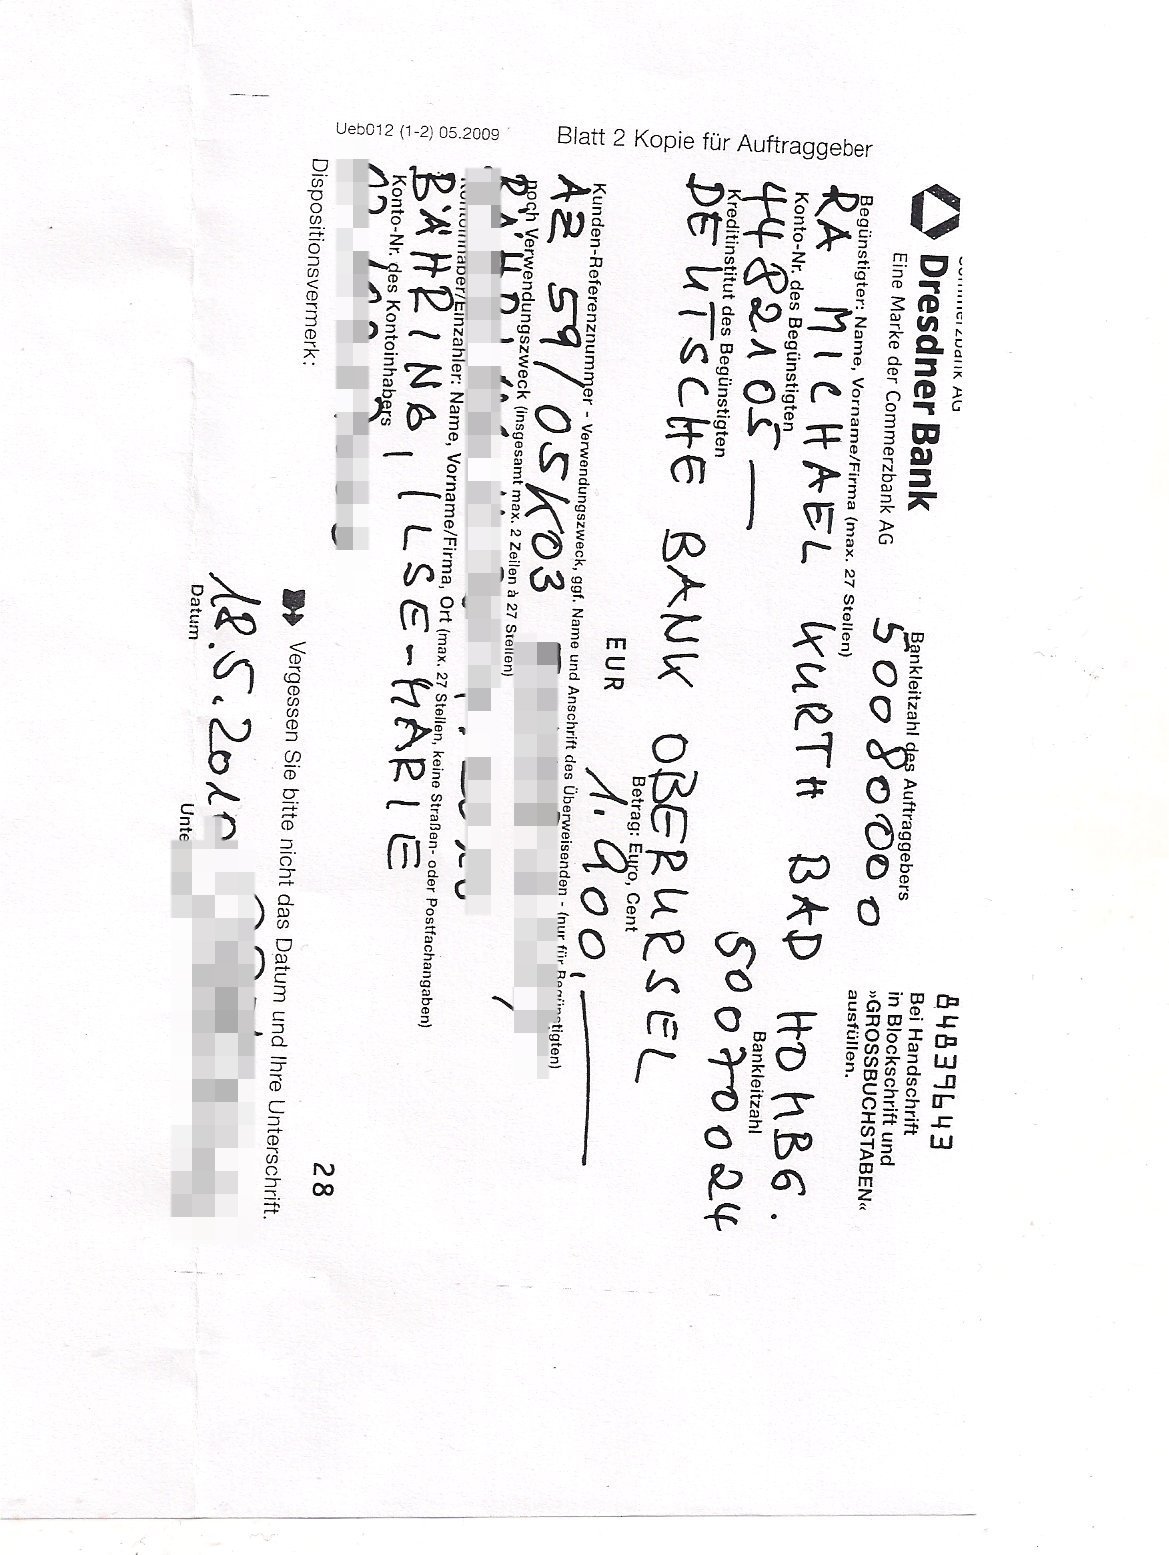 Commerzbank AG
Dresdner Bank
Eine Marke der Commerzbank AG
84839643
Bei Handschrift
in Blockschrift und
»GROSSBUCHSTABEN«
ausfüllen.
Bankleitzahl des Auftraggebers
50080000
Begünstigter: Name, Vorname/Firma (max. 27 Stellen)
RA MICHAEL KURTH BAD HOMBG.
Konto-Nr. des Begünstigten
Bankleitzahl
4482105 — 50070024
Kreditinstitut des Begünstigten
DEUTSCHE BANK OBERURSEL
Betrag: Euro, Cent
EUR 1.900,—
Kunden-Referenznummer - Verwendungszweck, ggf. Name und Anschrift des Überweisenden - (nur für Begünstigten)
AZ 59/05K03
noch Verwendungszweck (insgesamt max. 2 Zeilen à 27 Stellen)
Kontoinhaber/Einzahler: Name, Vorname/Firma, Ort (max. 27 Stellen, keine Straßen- oder Postfachangaben)
BÄHRING, ILSE-MARIE
Konto-Nr. des Kontoinhabers
28
Dispositionsvermerk:
Vergessen Sie bitte nicht das Datum und Ihre Unterschrift.
18.5.2010
Datum
Unte
Blatt 2 Kopie für Auftraggeber
Ueb012 (1-2) 05.2009